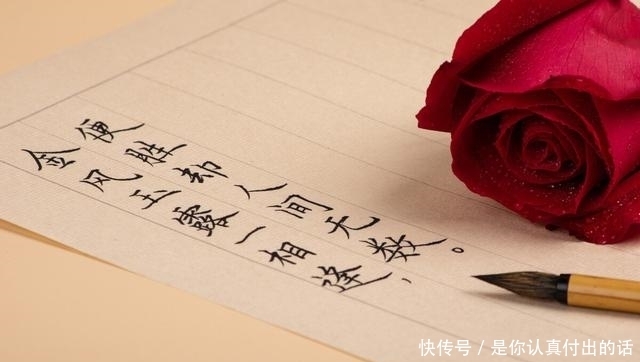 金风玉露一相逢、
便胜却人间无数。
快传号 / 是你认真付出的话